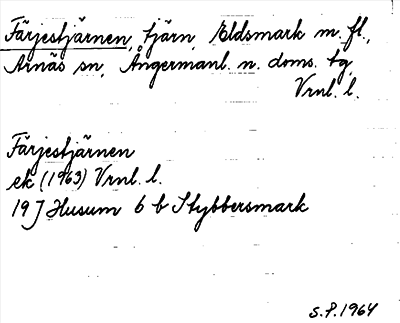 Färjestjärnen, tjärn, Eldsmark m. fl.,
Arnäs sn, Ångermanl. n. doms. tg
Vrnl. l.
Färjestjärnen
ek (1963) Vrnl. l.
19 J Husum 6 b Stybbersmark
S.P. 1964